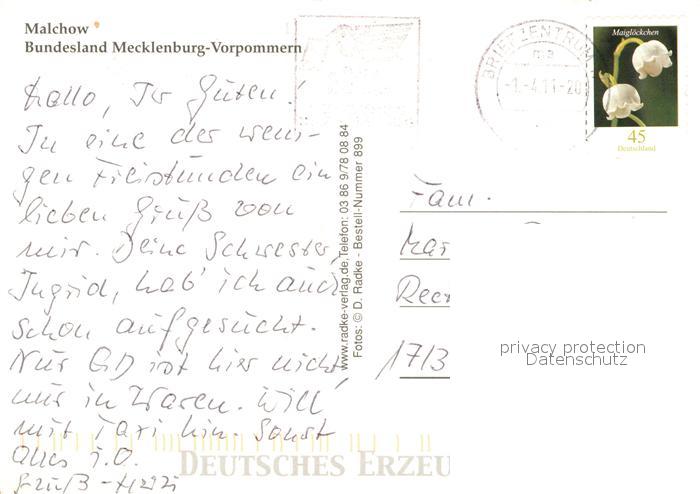 Malchow
Bundesland Mecklenburg-Vorpommern
Hallo, Ihr Guten!
In eine der weni-
gen Freistunden ein
lieben Gruß von
mir. Deine Schwester,
Ingrid, hab' ich auch
schon aufgesucht.
Nur GD ist hier nicht,
nur in Waren. Will
mit Taxi hin. Sonst
alles i.O.
Gruß -
www.radke-verlag.de,Telefon: 03 86 9/78 08 84
Fotos: © D. Radke - Bestell-Nummer 899
BRIEFZENTRUM
-1.-4.11-20
Maiglöckchen
45
Deutschland
Fam.
1713
privacy protection
Datenschutz
DEUTSCHES ERZEU